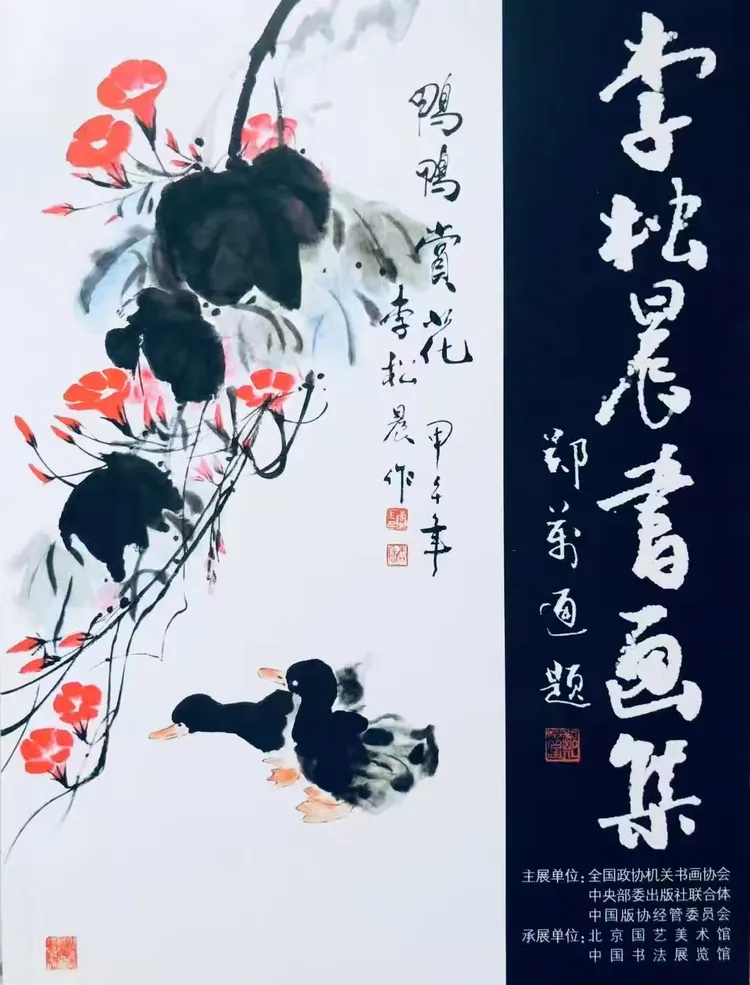 李松晨书画集
郑万通题
鸭鸭赏花 甲午年
李松晨作
主展单位：全国政协机关书画协会
中央部委出版社联合体
中国版协经管委员会
承展单位：北京国艺美术馆
中国书法展览馆